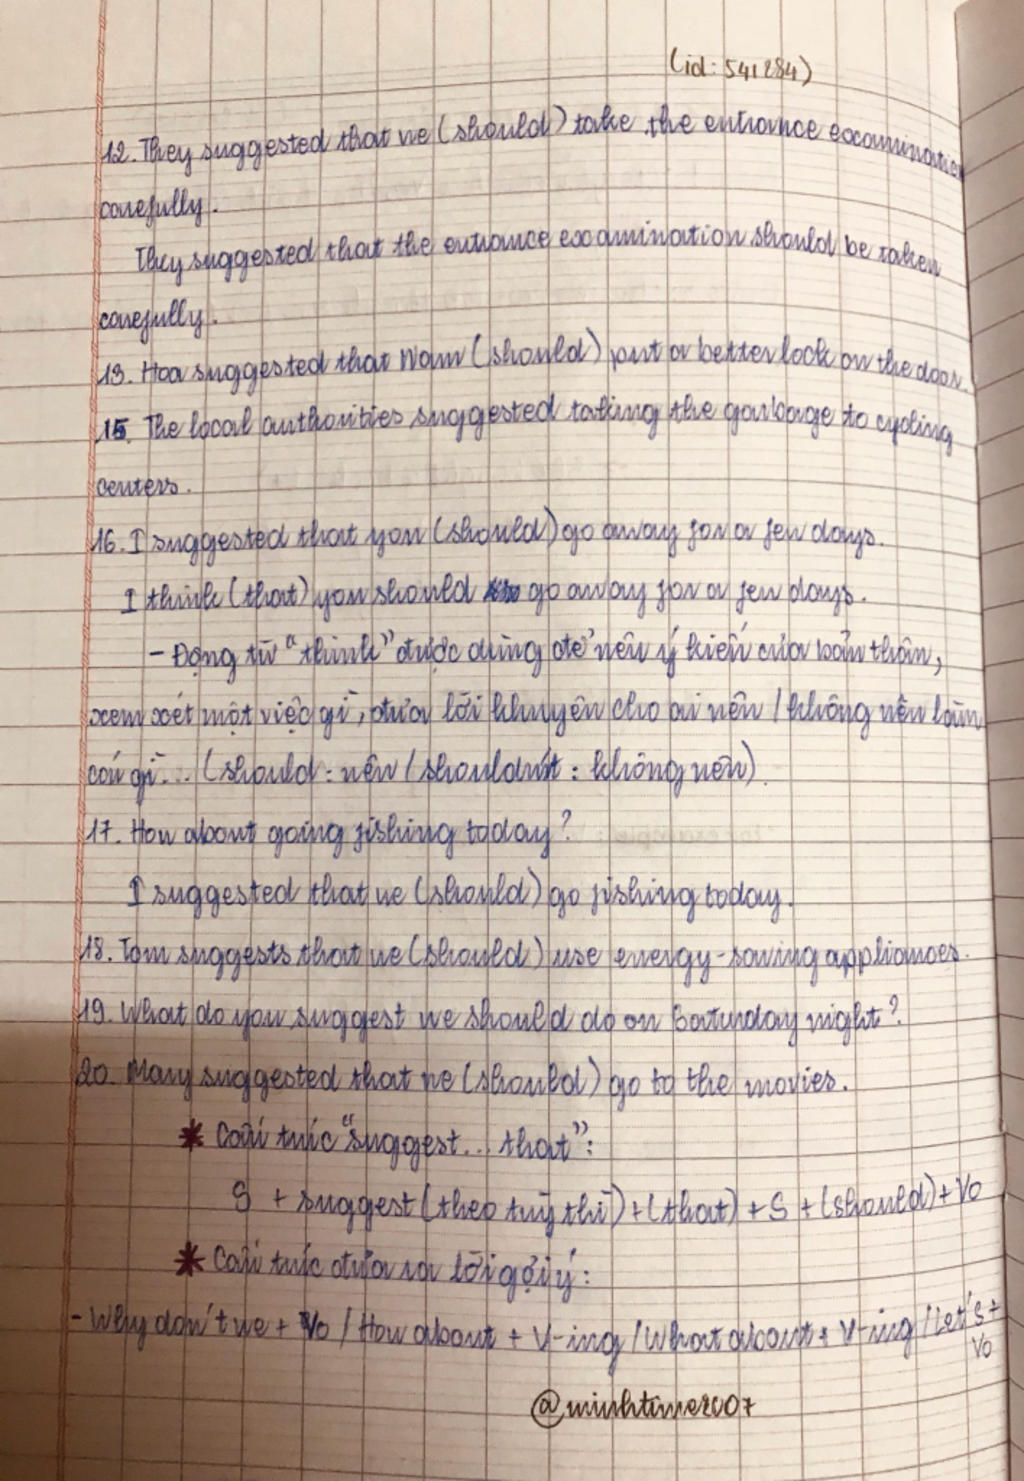 (id: 541284)
12. They suggested that we (should) take the entrance examination
carefully.
They suggested that the entrance examination should be taken
carefully.
13. Hoa suggested that Nam (should) put a better lock on the door.
15. The local authorities suggested taking the garbage to cycling
centers.
16. I suggested that you (should) go away for a few days.
I think (that) you should go away for a few days.
- Động từ "think" được dùng để nêu ý kiến của bản thân,
xem xét một việc gì, đưa lời khuyên cho ai nên / không nên làm
cái gì... (should: nên / shouldn't: không nên).
17. How about going fishing today?
I suggested that we (should) go fishing today.
18. Tom suggests that we (should) use energy-saving appliances.
19. What do you suggest we should do on Saturday night?
20. Mary suggested that we (should) go to the movies.
* Cấu trúc "suggest... that":
S + suggest (theo tuỳ thì) + (that) + S + (should) + Vo
* Cấu trúc đưa ra lời gợi ý:
- Why don't we + Vo / How about + V-ing / What about + V-ing / Let's +
Vo
@minhtime2007